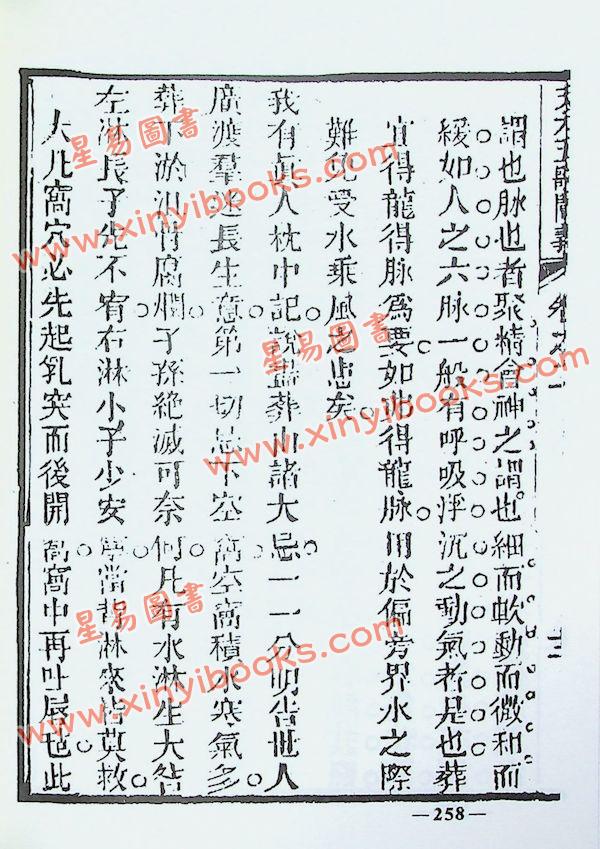 天元五歌闡義
謂也脉也者聚精會神之謂也細而軟動而微和而
緩如人之六脉一般有呼吸浮沉之動氣者是也葬
宜得龍得脉為要如此得龍脉用於偏旁界水之際
難免受水乘風之患矣
我有真人枕中記說盡葬山諸大忌一一分明告世人
廣渡羣迷長生意第一切忌下空窩空窩積水寒氣多
葬下淤泪骨腐爛子孫絕滅可奈何凡有水淋生大咎
左淋長子先不宥右淋小子少安寧當背淋來皆莫救
大凡窩穴必先起乳突而後開窩窩中再吐唇毡此
—258—
星易圖書
www.xinyibooks.com
星易圖書
www.xinyibooks.com
星易圖書
www.xinyibooks.com